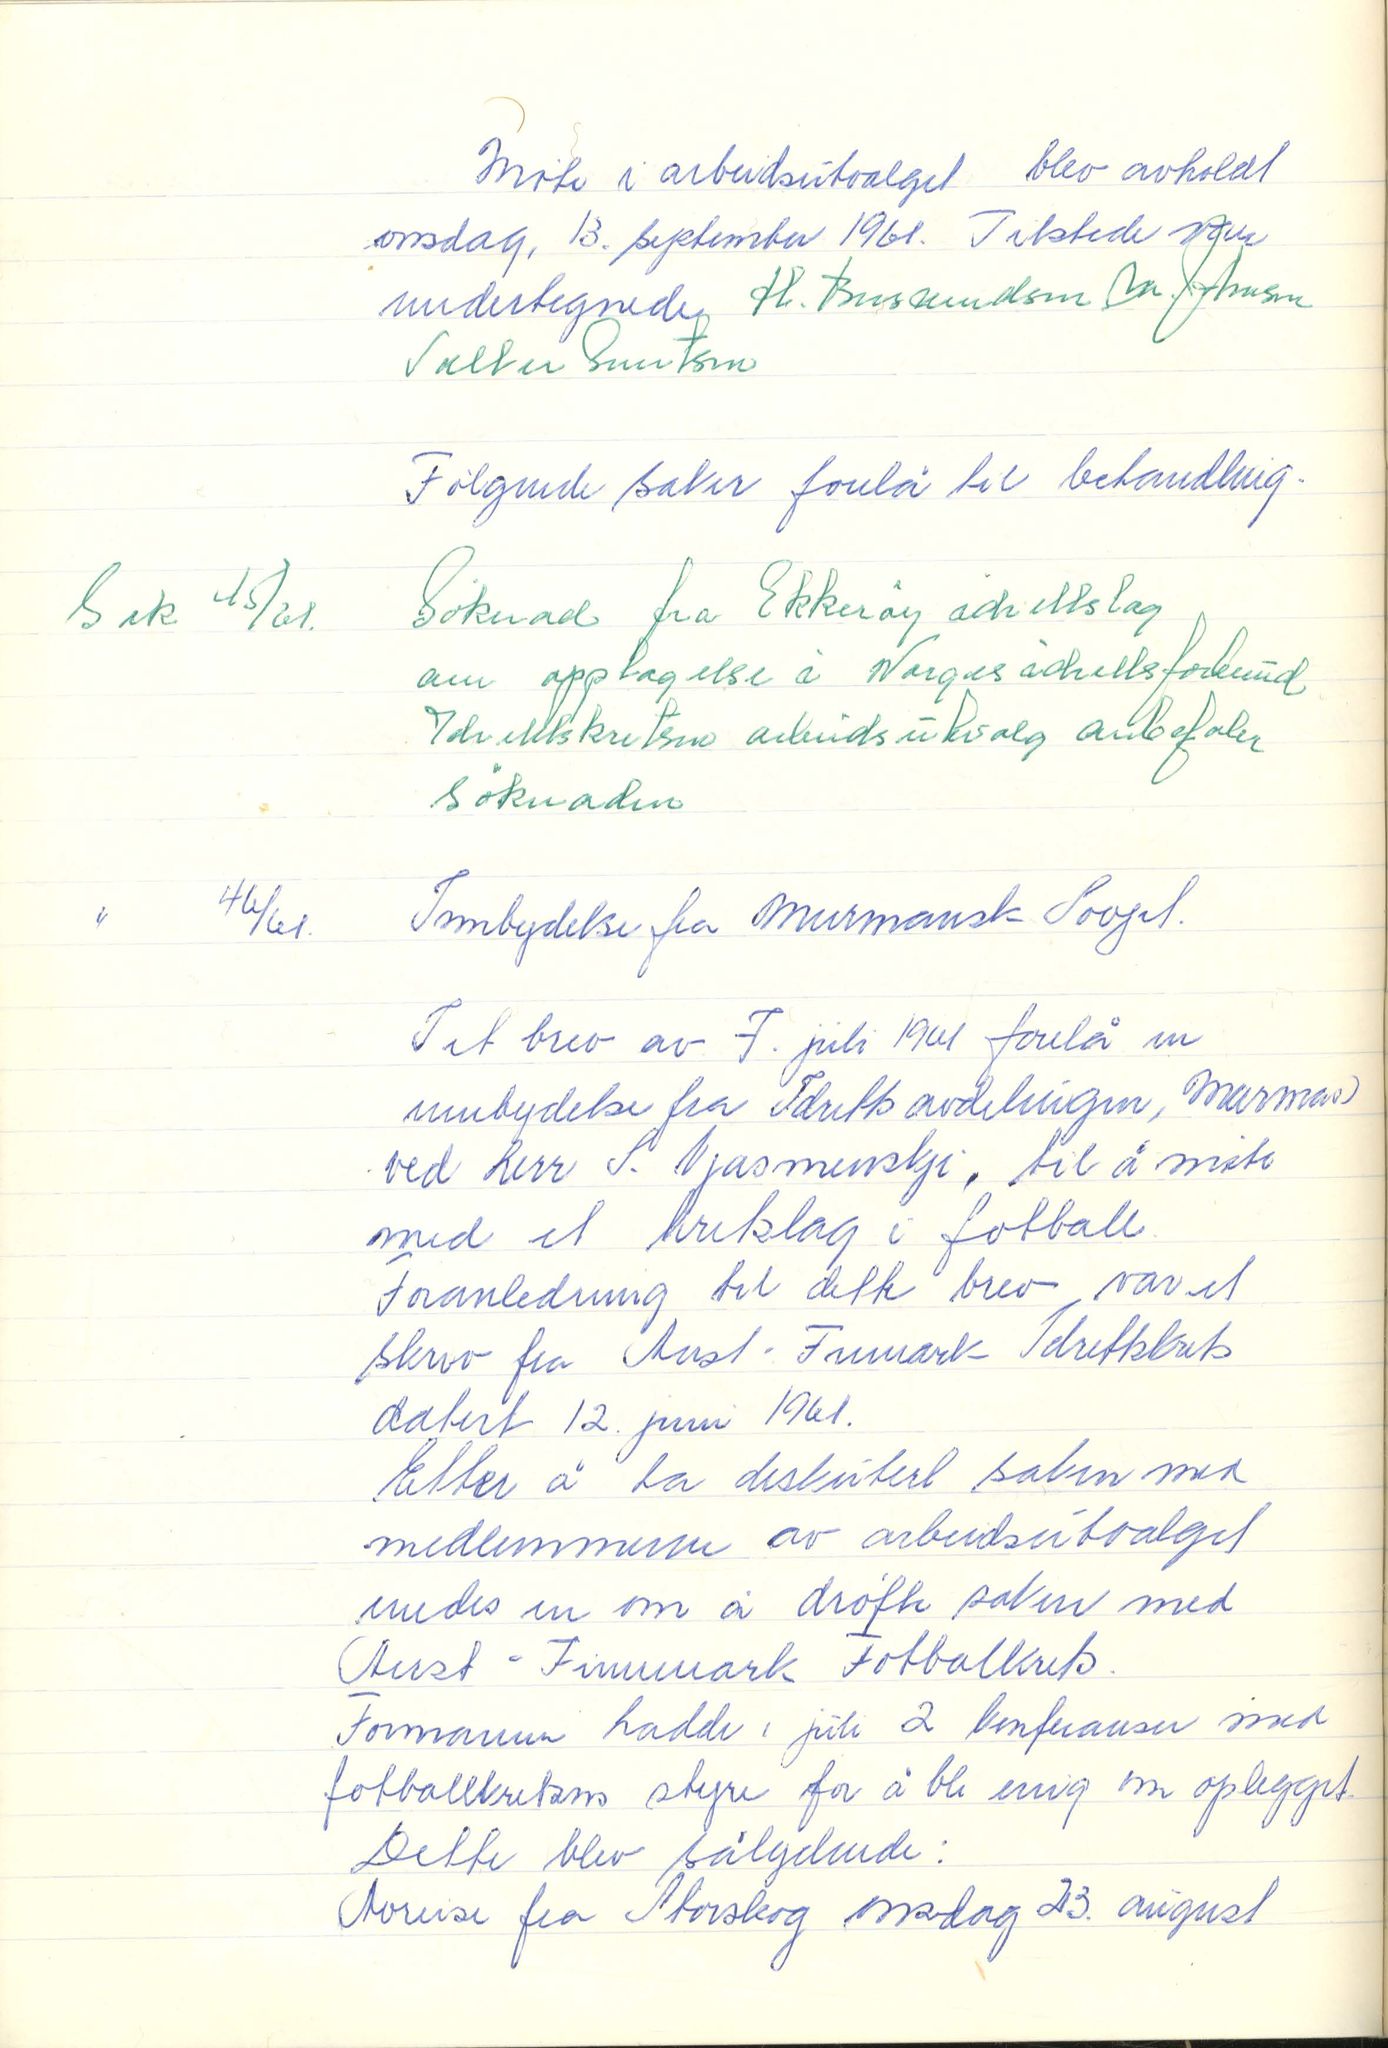 Møte i arbeidsutvalget blev avholdt
onsdag, 13. september 1961. Tilstede var
undertegnede,
Følgende saker forelå til behandling.
Sak 45/61. Söknad fra Ekkeröy idrettslag
om opptagelse i Norges idrettsforbund
Idrettskretsens arbeidsutvalg anbefaler
söknaden
" 46/61. Innbydelse fra Murmansk Sovjet.
I et brev av 7. juli 1961 forelå en
innbydelse fra Idrettsavdelingen, Murmansk
ved herr S. Vjasmenskji, til å møte
med et kretslag i fotball
Foranledning til dette brev var et
skriv fra Aust-Finmark Idrettskrets
datert 12. juni 1961.
Etter å ha diskutert saken med
medlemmene av arbeidsutvalget
enedes en om å drøfte saken med
Aust-Finnmark Fotballkrets.
Formannen hadde i juli 2 konferanser med
fotballkretsens styre for å bli enig om oplegget.
Dette blev sålydende:
Avreise fra Storskog onsdag 23. august